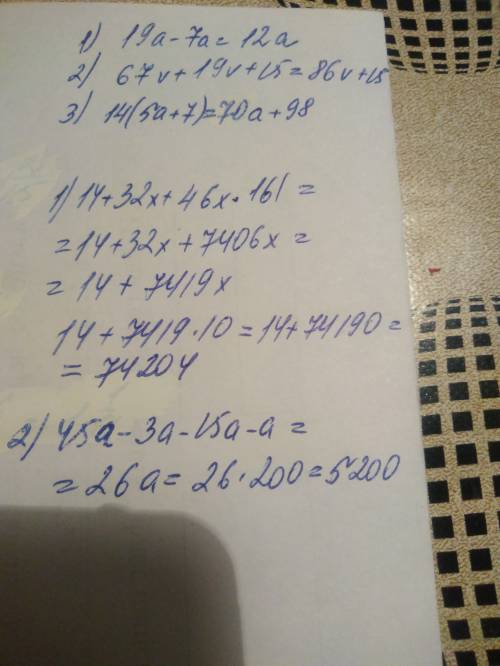 1) 19a-7a=12a
2) 67v+19v+15=86v+15
3) 14(5a+7)=70a+98
1) 14+32x+46x·161=
=14+32x+7406x=
=14+7419x
14+7419·10=14+74190=
=74204
2) 45a-3a-15a-a=
=26a=26·200=5200